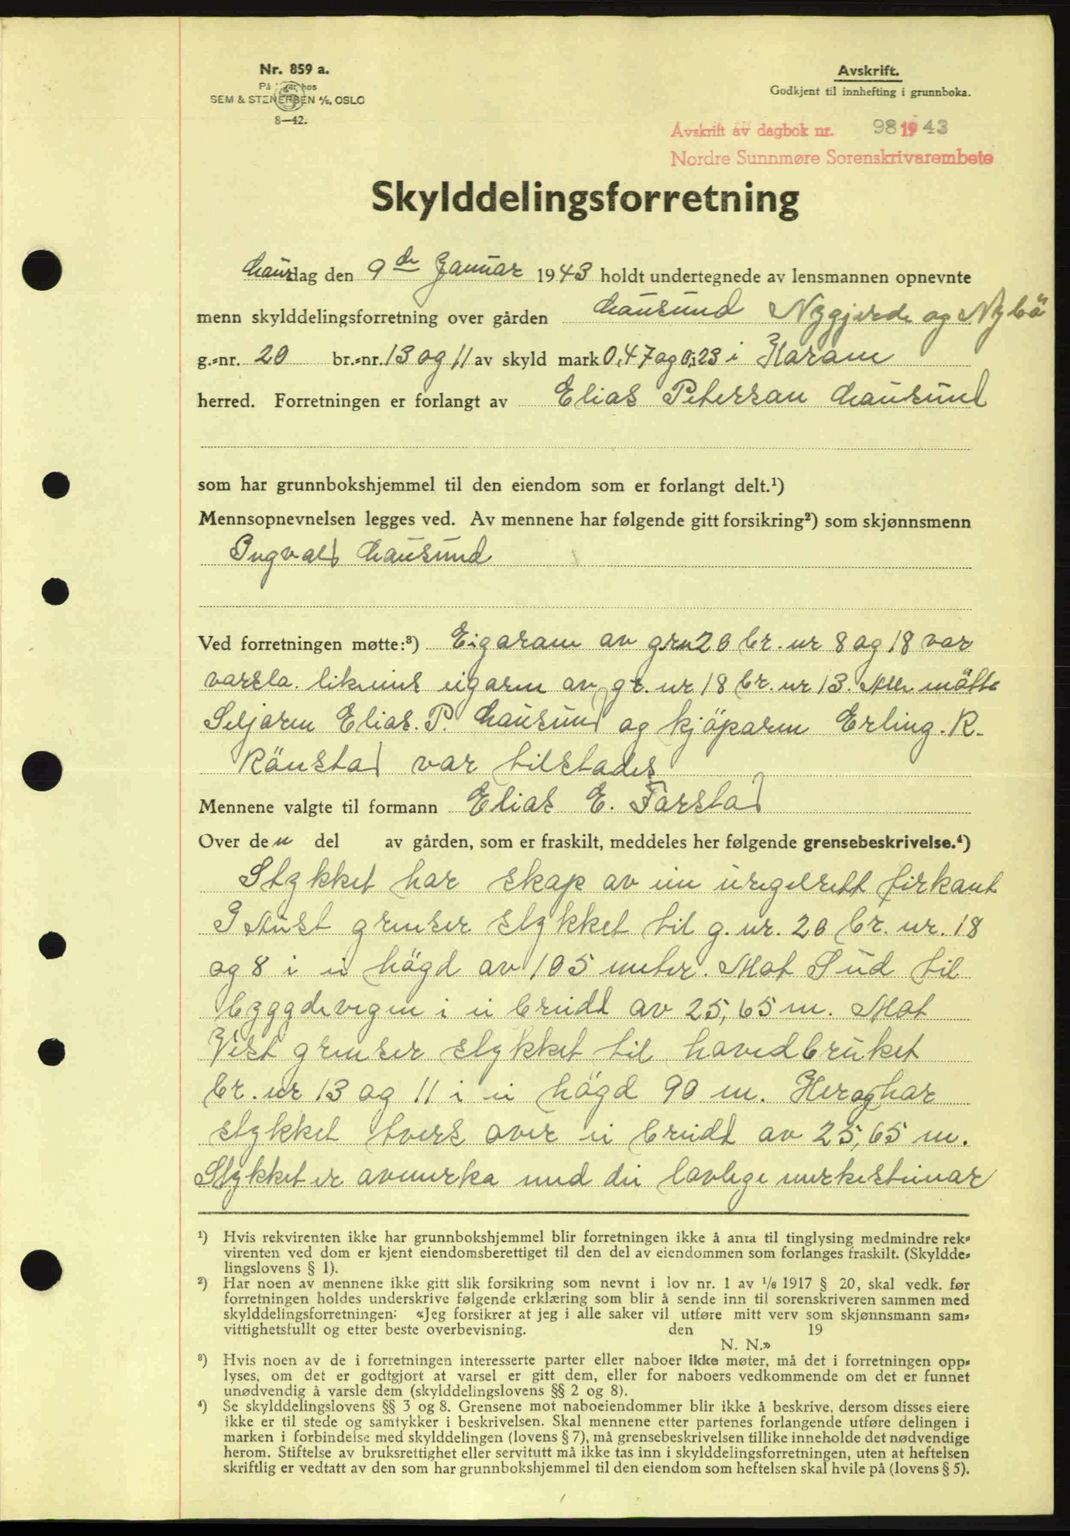 Nr. 859 a.
På lager hos
SEM & STENERSEN A/S, OSLO
8—42.
Avskrift.
Godkjent til innhefting i grunnboka.
Avskrift av dagbok nr. 98 1943
Nordre Sunnmøre Sorenskrivarembete
Skylddelingsforretning
Laurdag den 9de Januar 1943 holdt undertegnede av lensmannen opnevnte
menn skylddelingsforretning over gården Lausund Nygjerde og Nybö
g.-nr. 20 br.-nr. 13 og 11 av skyld mark 0,47 og 0,23 i Haram
herred. Forretningen er forlangt av Elias Peterson Lausund
som har grunnbokshjemmel til den eiendom som er forlangt delt.¹)
Mennsopnevnelsen legges ved. Av mennene har følgende gitt forsikring²) som skjønnsmenn
Ingvald Lausund
Ved forretningen møtte:³) Eigaran av grn 20 br. nr 8 og 18 var
varsla. likeeins eigaren av gr. nr 18 br. nr 13. Alle mötte
Seljaren Elias. P. Lausund og kjöparen Erling. K.
Rönstad var tilstades
Mennene valgte til formann Elias E. Farstad
Over den del av gården, som er fraskilt, meddeles her følgende grensebeskrivelse.⁴)
Stykket har skap av ein uregelrett firkant
I Aust grenser stykket til g. nr. 20 br. nr. 18
og 8 i ei högd av 105 meter. Mot Sud til
bygdevegen i ei breidd av 25,65 m. Mot
Vest grenser stykket til hovedbruket
br. nr 13 og 11 i ei högd 90 m. Her og har
stykket tvers over ei breidd av 25,65 m.
Stykket er avmerka med dei lovlege merkesteinar
¹) Hvis rekvirenten ikke har grunnbokshjemmel blir forretningen ikke å anta til tinglysing medmindre rek-
virenten ved dom er kjent eiendomsberettiget til den del av eiendommen som forlanges fraskilt. (Skyldde-
lingslovens § 1).
²) Har noen av mennene ikke gitt slik forsikring som nevnt i lov nr. 1 av 1/6 1917 § 20, skal vedk. før
forretningen holdes underskrive følgende erklæring som blir å sende inn til sorenskriveren sammen med
skylddelingsforretningen: «Jeg forsikrer at jeg i alle saker vil utføre mitt verv som skjønnsmann sam-
vittighetsfullt og etter beste overbevisning. den 19
N. N.»
³) Hvis noen av de i forretningen interesserte parter eller naboer ikke møter, må det i forretningen opp-
lyses, om det er godtgjort at varsel er gitt dem, eller for naboers vedkommende om det er funnet
unødvendig å varsle dem (skylddelingslovens §§ 2 og 8).
⁴) Se skylddelingslovens §§ 3 og 8. Grensene mot naboeiendommer blir ikke å beskrive, dersom disses eiere
ikke er til stede og samtykker i beskrivelsen. Skal mennene etter partenes forlangende utføre delingen i
marken i forbindelse med skylddelingen (lovens § 7), må grensebeskrivelsen tillike inneholde det nødvendige
herom. Stiftelse av bruksrettighet eller servitutt må ikke tas inn i skylddelingsforretningen, uten at heftelsen
skriftlig er vedtatt av den som har grunnbokshjemmel til den eiendom som heftelsen skal hvile på (lovens § 5).